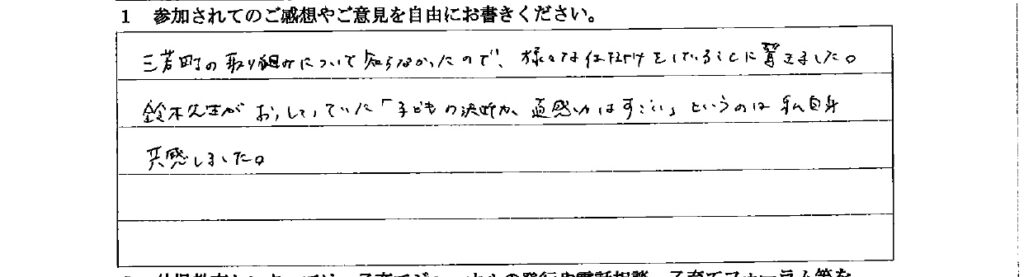 1 参加されてのご感想やご意見を自由にお書きください。
三芳町の取り組みについて知らなかったので、様々な仕掛けをしていることに驚きました。
鈴木先生がおっしっていた「子どもの決断力、直感力はすごい」というのは私自身
共感しました。